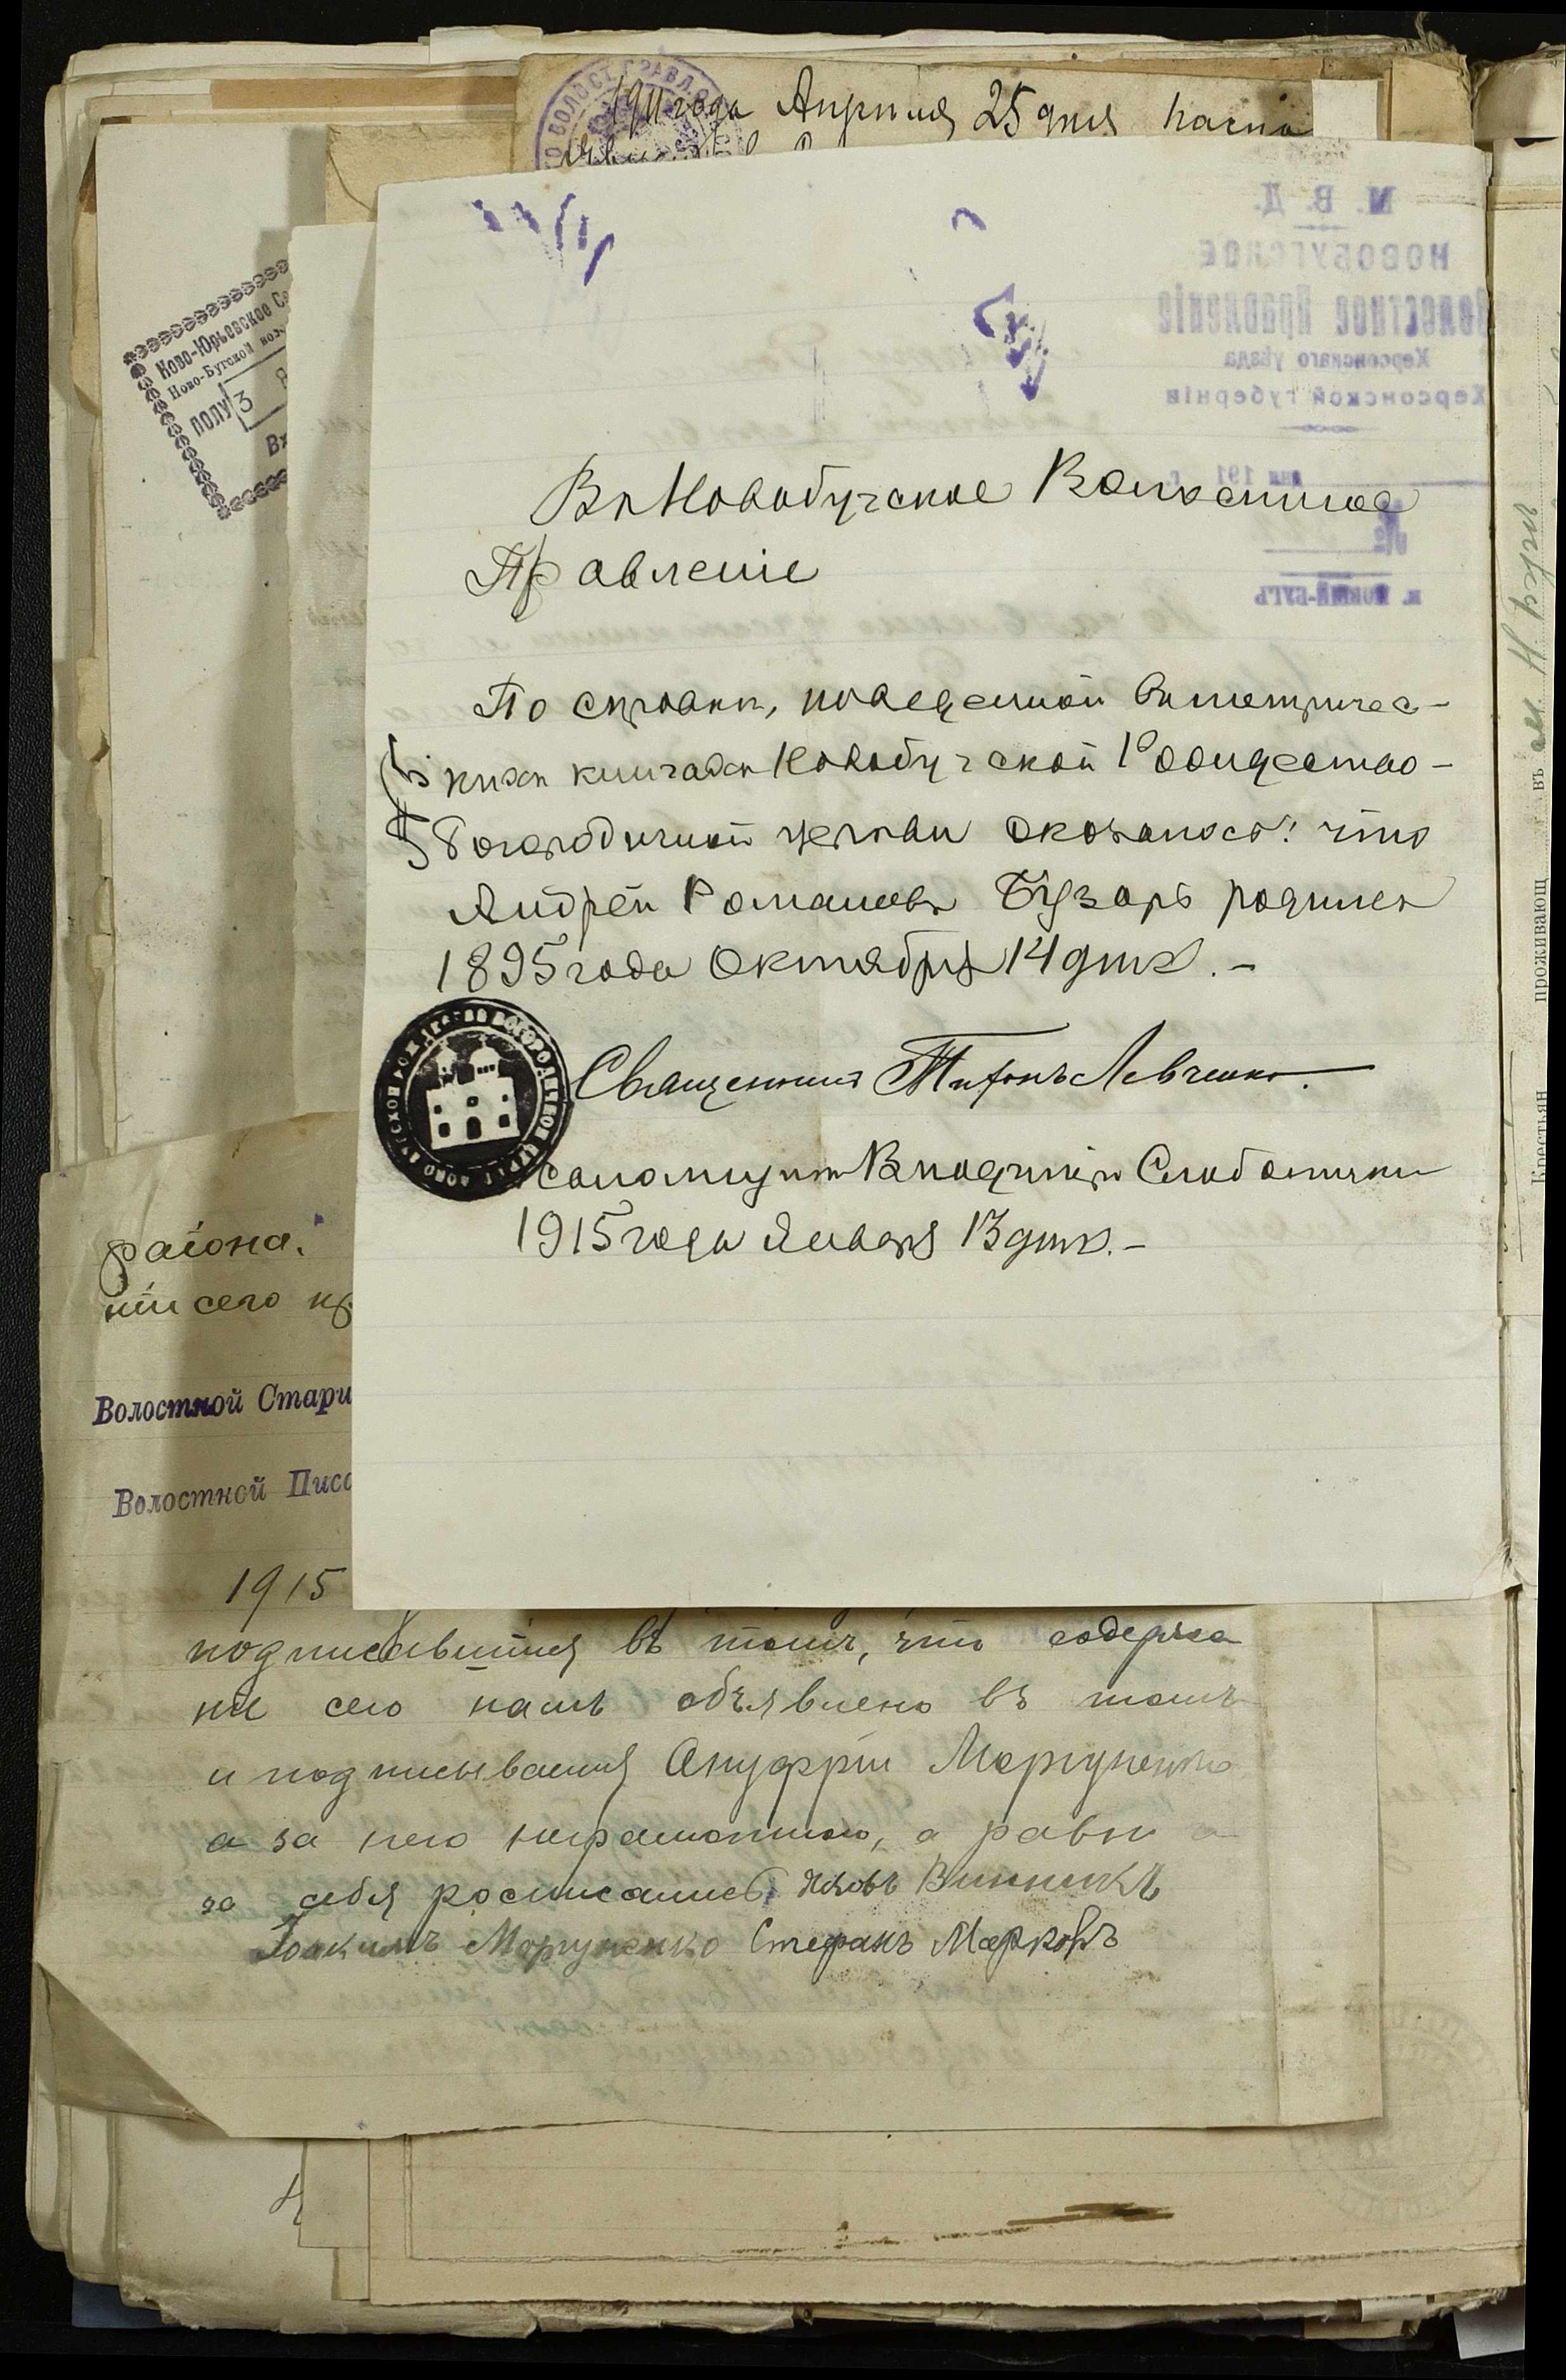 1911 года Апрѣля 25 дня
Ново-Юрьевское Се
Ново-Бугской вол.
ПОЛУ
3
Вх
М. В. Д.
НОВОБУГСКОЕ
Волостное Правленіе
Херсонскаго уѣзда
Херсонской губерніи
дня 191 г.
№
м. НОВЫЙ-БУГЪ
Въ Новобугское Волостное
Правленіе
По справкѣ, наведенной въ метричес-
кихъ книгахъ Новобугской Рождество-
Богородичной церкви оказалось: что
Андрей Романовъ Бузарь родился
1895 года Октября 14 дня. –
Священникъ Тихонъ Левченко.
Псаломщикъ Владиміръ
1915 года Января 13 дня. –
района.
ніи сего пр
Волостной Стари
Волостной Писа
1915
подписавшіяся въ томъ, что содержа
ніе сего намъ объявлено въ томъ
и подписываемся Онуфрій Моргуненко
а за него неграмотнаго, а равно и
за себя росписались Яковъ Винникъ
Іоакимъ Моргуненко Стефанъ Марковъ
Крестьян проживающ въ